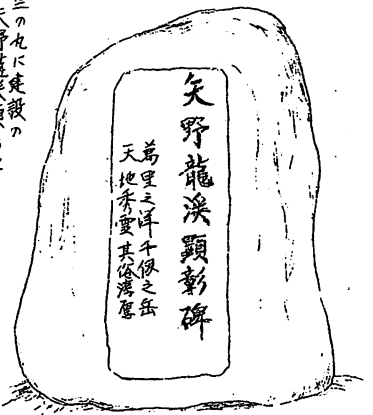 矢野龍渓顕彰碑
萬里之洋千仭之岳
天地秀霊其俗湻厚
三の丸に建設の